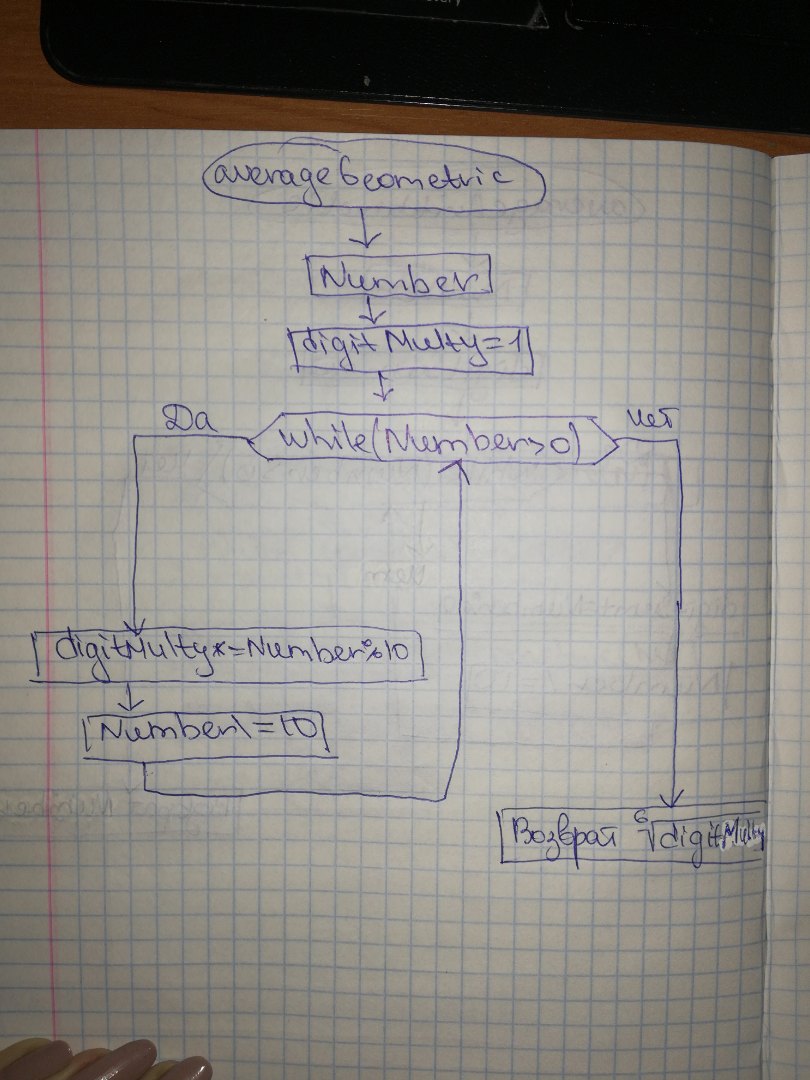 averageGeometric
Number
digitMulty=1
Да
while(Number>0)
нет
digitMulty*=Number%10
Number\=10
Возврат ⁶√digitMulty